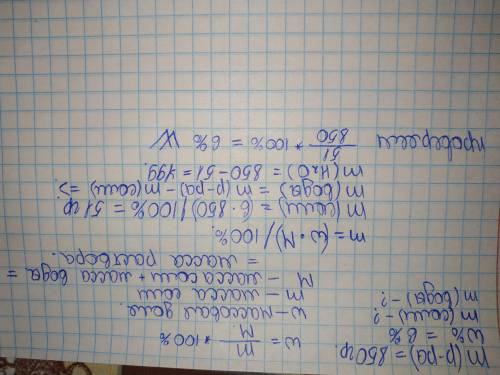 m(р-ра) = 850гр.
w% = 6%
m(соли) - ?
m(вода) - ?
w = m/M * 100%
w - массовая доля
m - масса соли
M - масса соли + масса вода =
= масса раствора.
m = (w · M) / 100%
m(соли) = (6 · 850) / 100% = 51 гр
m(вода) = m(р-ра) - m(соли) =>
m(H2O) = 850 - 51 = 499.
проверяем 51/850 * 100% = 6%